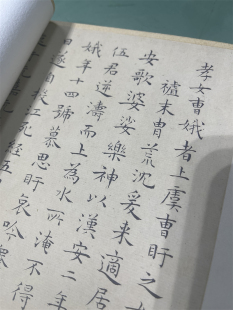 孝女曹娥者上虞曹盱之
末胄荒沉爰来適居
安歌婆娑樂神以漢安二年
伍君逆濤而上為水所淹不得
娥年十四號慕思盱哀吟
遂自投江死經五